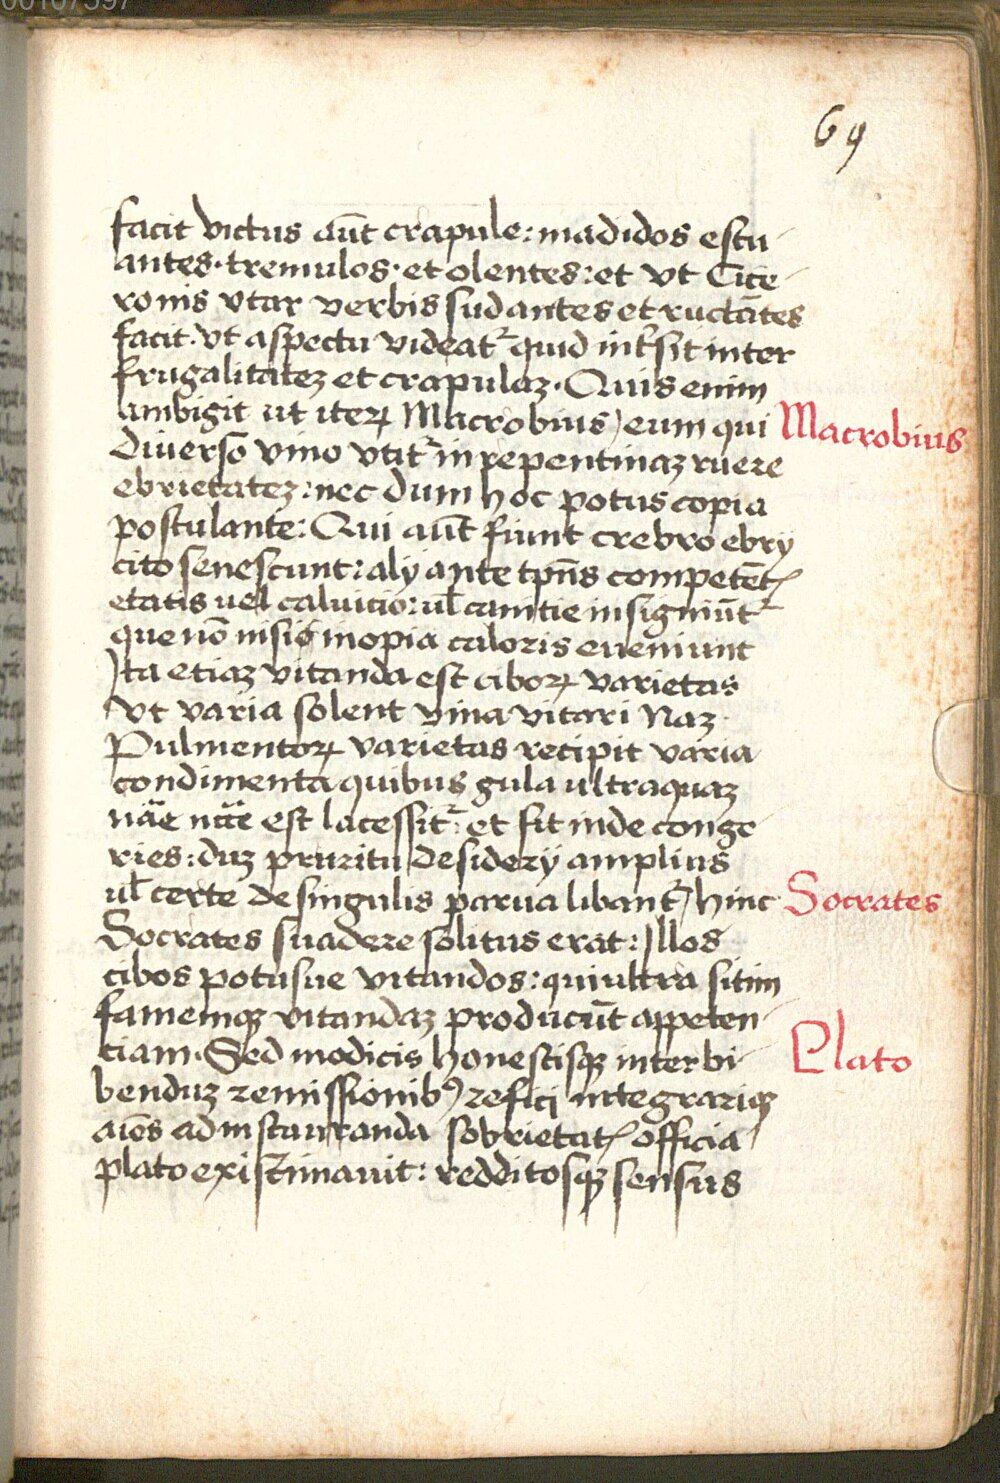 00107597
69
facit victus aūt crapule: madidos estu-
antes· tremulos· et olentes: et vt Cice-
ronis vtar verbis sudantes et ructātes
facit· vt aspectu videat᷑ quid int͛sit inter
frugalitatez et crapulaz· Quis enim
ambigit ut iterꝝ Macrobius) eum qui
Macrobius
diuerso vino vtit᷑ in repentinaz ruere
ebrietatez: nec dum hoc potus copia
postulante: Qui aūt fiunt crebro ebrÿ
cito senescunt: alÿ ante tp̄ns competētꝭ
etatis uel caluicio: ul̄ canitie insigniūt᷑
que nō nisi ó inopia caloris eueniunt
Ita etiaz vitanda est ciborꝝ varietas
Vt varia solent vina vitari Naz
Pulmentorꝝ varietas recipit varia
condimenta quibus gula ultraquaz
näe ncc̄e est lacessit᷑: et fit inde conge-
ries: duz pruritu desiderÿ amplius
ul̄ certe de singulis parua libant᷑) hinc
Socrates
Socrates suadere solitus erat: Illos
cibos potusue vitandos: qui ultra sitim
famemqꝫ vitandaz producūt appeten-
ciam· Sed modicis honestisqꝫ inter bi-
Plato
benduz remissionibꝰ refici integrariqꝫ
aīōs ad instaurranda sobrietatꝭ officia
plato existimauit: redditosqꝫ sensus